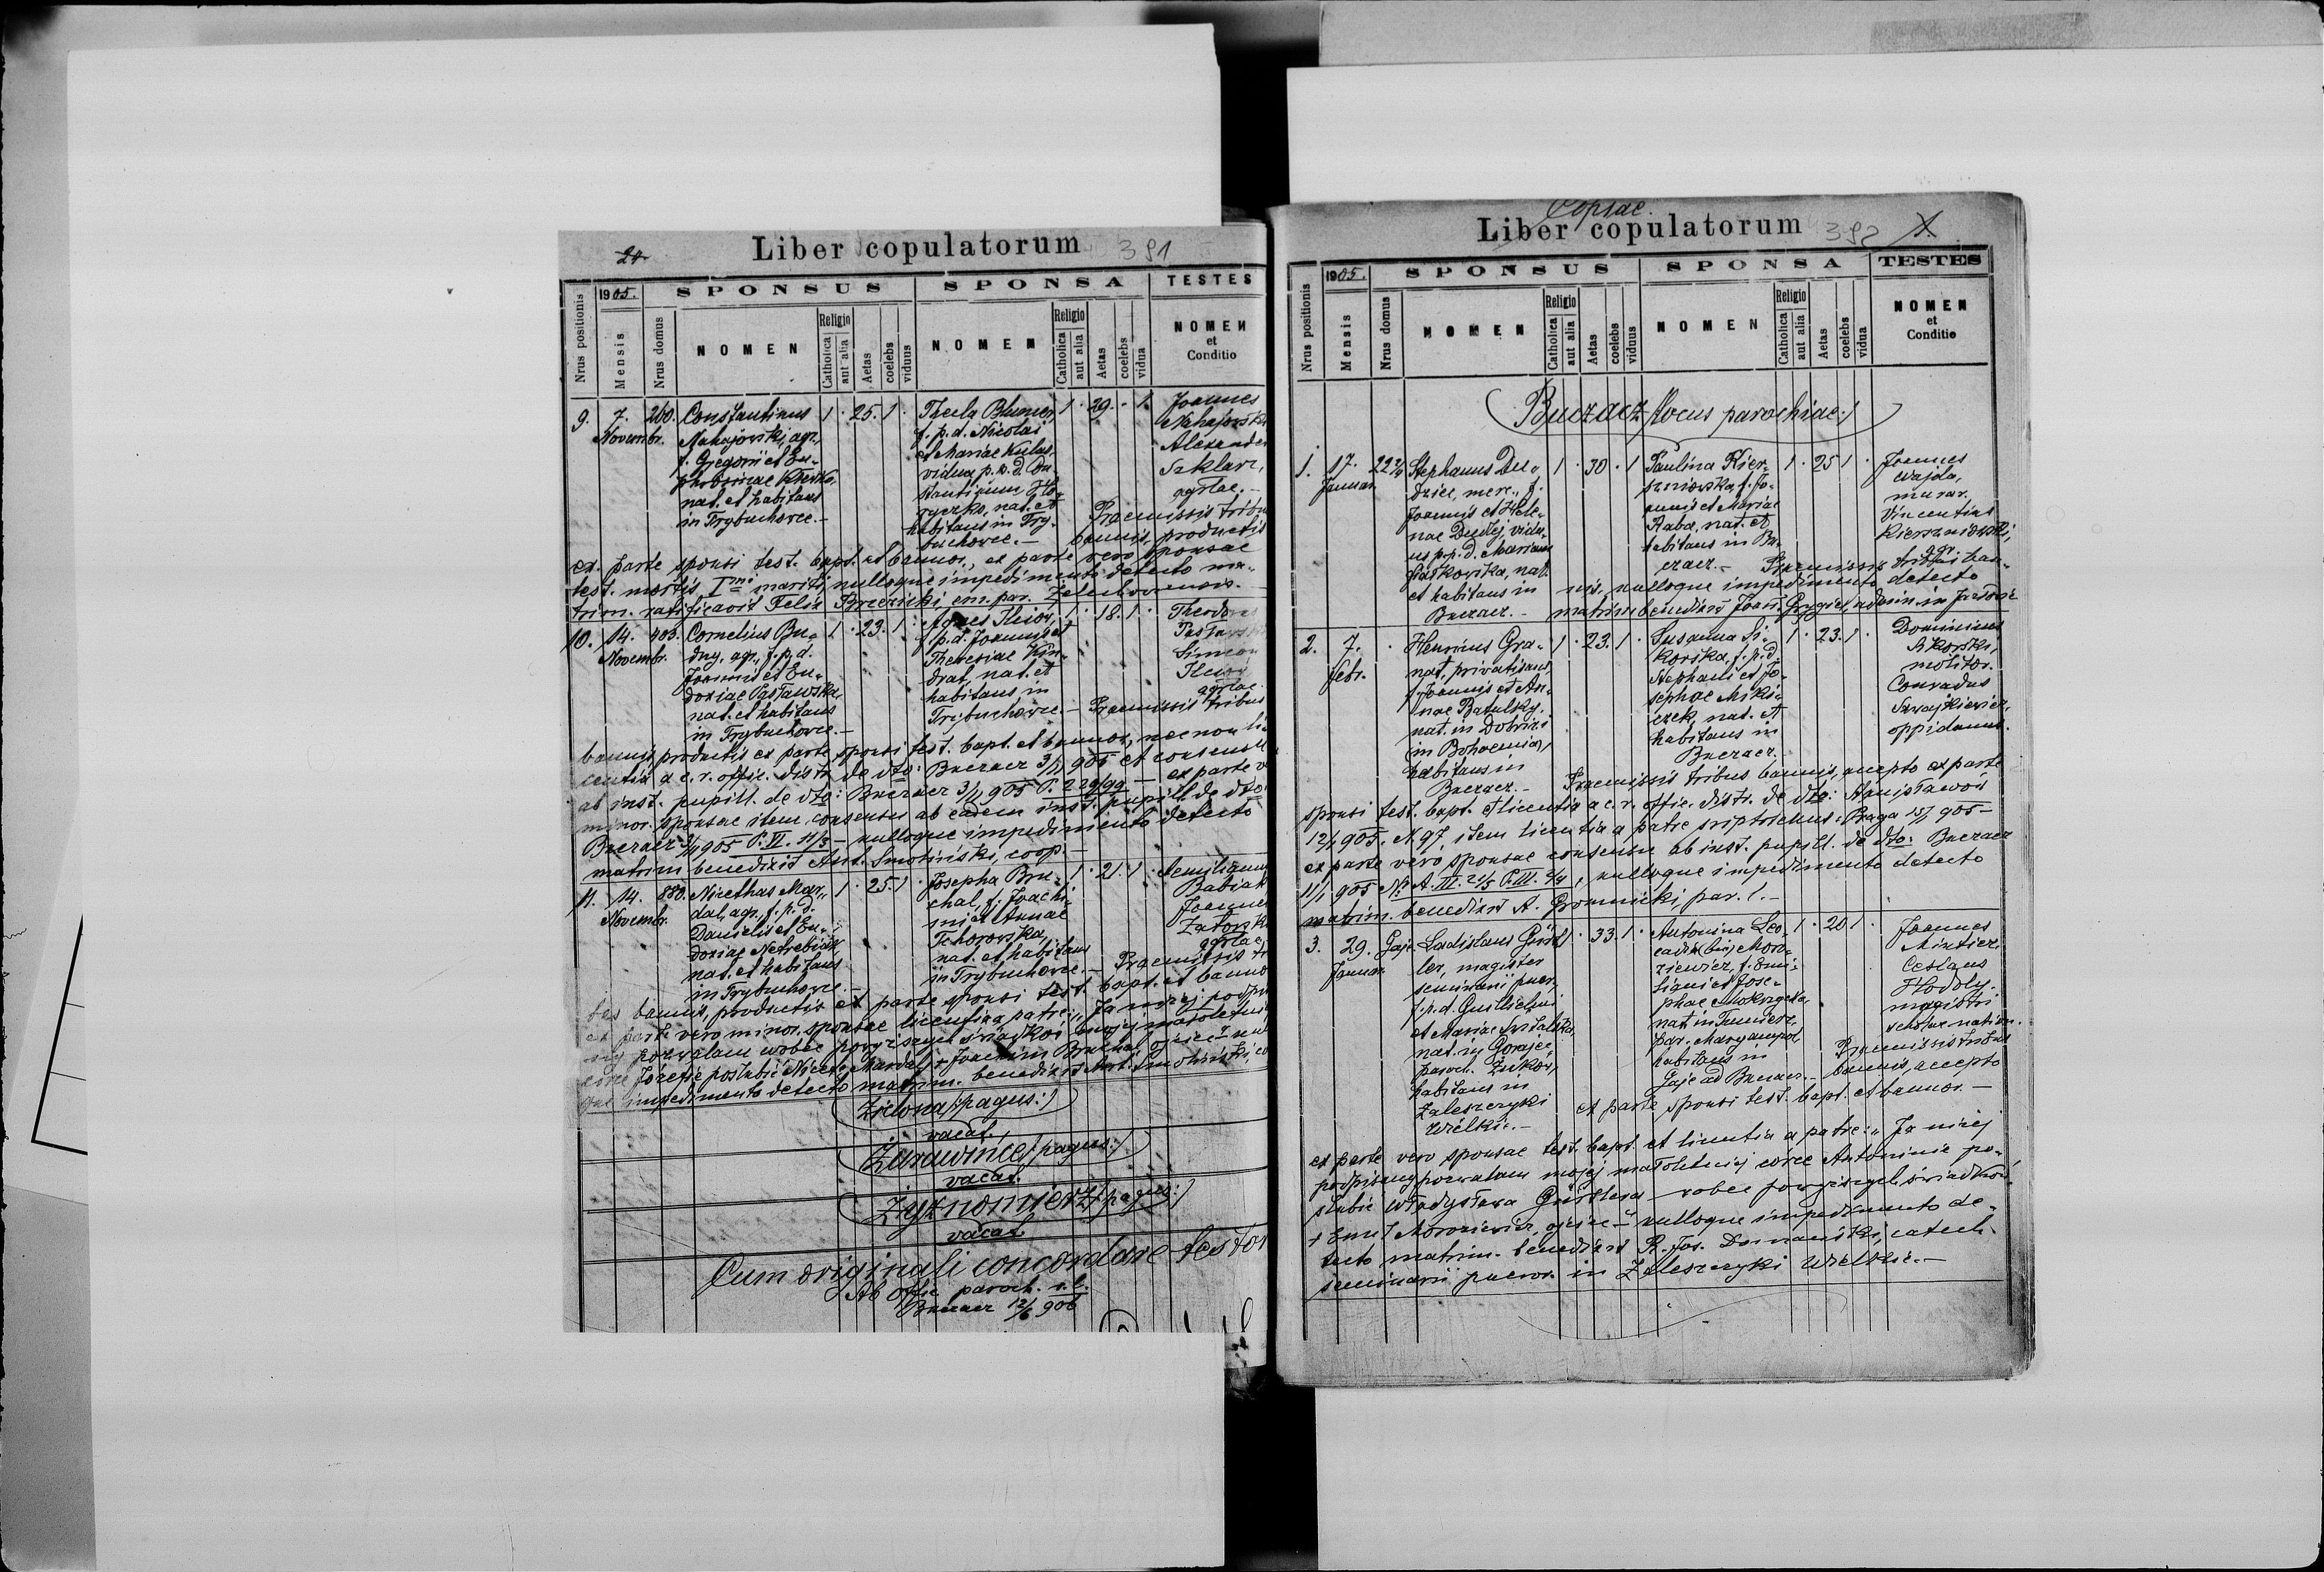 24
Liber copulatorum 391
Nrus positionis
1905.
Mensis
Nrus domus
SPONSUS
NOMEN
Religio
Catholica
aut alia
Aetas
coelebs
viduus
SPONSA
NOMEN
Religio
Catholica
aut alia
Aetas
coelebs
vidua
TESTES
NOMEN
et
Conditio
9. 7. Novembr. 260.
Constantinus
Nahajowski, agr.,
f. Gregorii et Eu-
phrosinae
nat. et habitans
in Trybuchowce.-
1 . 25. 1 .
Thecla Blumer,
f. p. d. Nicolai
et Mariae Kulas,
vidua p. m. d. Con-
stantinum
ryczko, nat. et
habitans in Try-
buchowce.-
1 . 29. - 1.
Joannes
Nahajowski
Alexander
Szklarz,
agrlae.-
Praemissis tribus
bannis, productis
ex parte sponsi test. bapt. et bannor., ex parte vero sponsae
test. mortis Imi mariti, nulloque impedimento detecto ma-
trim. ratificavit Felix Brzeziński em. par.
10. 14. Novembr. 403.
Cornelius Bu-
dny, agr., f. p. d.
Joannis et Eu-
doxiae Pasławska,
nat. et habitans
in Trybuchowce.-
1 . 23. 1 .
Agnes Ilków,
f. p. d. Joannis et
Theresiae Kin-
drat, nat. et
habitans in
Trybuchowce.-
1 . 18. 1 .
Theodorus
Pasławski
Simeon
Ilków
agrlae.
Praemissis tribus
bannis, productis ex parte sponsi test. bapt. et bannor., nec non li-
centia a c. r. offic. distr. de dto: Buczacz 3/11 905 et consensu
ab inst. pupill. de dto: Buczacz 3/11 905 P. 229/99 - ex parte v
minor. sponsae item consensu ab eadem inst. pupill. de dto:
Buczacz 3/11 905 P. VI. 11/3 - nulloque impedimento detecto
matrim. benedixit Ant. Smoliński, coop.-
11. 14. Novembr. 880.
Nicethas Mar-
dal, agr., f. p. d.
Danielis et Eu-
doxiae Netrebiak
nat. et habitans
in Trybuchowce.-
1 . 25. 1 .
Josepha Bru-
chal, f. Joachi-
mi et Annae
Tchorowska,
nat. et habitans
in Trybuchowce.-
1 . 21. 1 .
Aemilianus
Babiak
Joannes
Zatorski
agrlae.
Praemissis tri-
bus bannis, productis ex parte sponsi test. bapt. et bannor.
ex parte vero minor. sponsae licentia a patre: "Ja niżej podpi
ny pozwalam wobec powyższych świadków mojej małoletniej
córce Józefie poślubić Nicetę Mardal + Joachim Bruchal ojciec" nul
que impedimento detecto matrim. benedixit Ant. Smoliński, co
Zielona (pagus:)
vacat.
Żurawińce (pagus:)
vacat.
Żyznomierz (pagus:)
vacat.
Cum originali concordare testor
Ab offic. paroch. r. l.
Buczacz 12/6 906
Copiae.
Liber copulatorum 392 1.
Nrus positionis
1905.
Mensis
Nrus domus
SPONSUS
NOMEN
Religio
Catholica
aut alia
Aetas
coelebs
viduus
SPONSA
NOMEN
Religio
Catholica
aut alia
Aetas
coelebs
vidua
TESTES
NOMEN
et
Conditio
Buczacz (locus parochiae:)
1. 17. Januar.
Stephanus Du-
dzicz, merc., f.
Joannis et Hele-
nae Dudij, vidu-
us p. p. d. Mariam
Siatkowska, nat.
et habitans in
Buczacz.-
1 . 30 . 1
Paulina Kier-
szniowska, f. Jo-
annis et Mariae
Raba, nat. et
habitans in Bu-
czacz.-
1 . 25 1 .
Joannes
Wajda,
murar.
Vincentius
Kierszniowski,
agr.
Praemissis tribus ban-
nis, nulloque impedimento detecto
matrim. benedixit Joan. Grygiel, admin. in
2. 7. Febr. .
Henricus Gra-
nat, privatisans,
f. Joannis et An-
nae Batulsky,
nat. in Dobrici
in Bohoemia,
habitans in
Buczacz.-
1 . 23. 1 .
Susanna Si-
korska, f. p. d.
Stephani et Jo-
sephae Miki-
czek, nat. et
habitans in
Buczacz.
1 . 23. 1 .
Dominicus
Sikorski,
molitor.
Conradus
Szrajkiewicz,
oppidanus.
Praemissis tribus bannis, accepto ex parte
sponsi test. bapt. et licentia a c. r. offic. distr. de dto: Stanisławów
12/1 905. N 97, item licentia a patre scripto datus: Praga 15/1 905 -
ex parte vero sponsae consensu ab inst. pupill. de dto: Buczacz
11/1 905 N: A. III. 21/5 P. III. 2/4, nulloque impedimento detecto
matrim. benedixit A. Gromnicki, par. l.-
3. 29. Januar. Gaje.
Ladislaus Gürt-
ler, magister
seminarii puer.,
f. p. d. Guilielmi
et Mariae
nat. in Gorajec
paroch. Żuków,
habitans in
Zaleszczyki
Wielkie.-
1 . 33. 1 .
Antonina Leo-
cadia (bin.) Moro-
ziewicz, f. Emi-
liani et Jose-
phae Mokrzycka,
nat. in Tumierz
par. Maryampol
habitans in
Gaje ad Buczacz.-
1 . 20 1 .
Joannes
Ceslaus
Hodoly,
magistri
scholae nation.
Praemissis tribus
bannis, accepto
ex parte sponsi test. bapt. et bannor.-
ex parte vero sponsae test. bapt. et licentia a patre: "Ja niżej
podpisany pozwalam mojej małoletniej córce Antoninie po-
ślubić Władysława Gürtlera - wobec powyższych świadków
+ Emil Moroziewicz, ojciec" - nulloque impedimento de-
tecto matrim. benedixit R. Jos. Domański, catech.
seminarii puer. in Zaleszczyki Wielkie.-